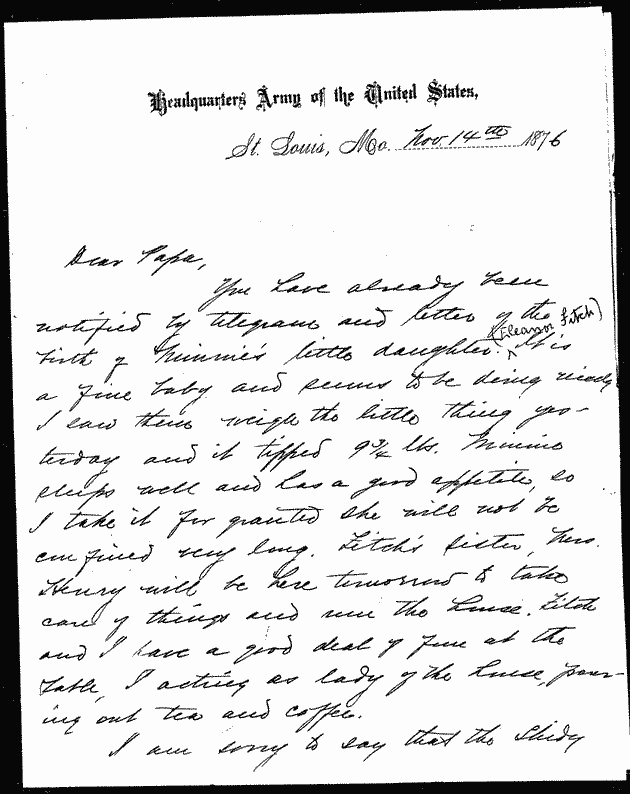 Headquarters Army of the United States,
St. Louis, Mo. Nov. 14th 1876
Dear Papa,
You have already been
notified by telegram and letter of the
(Eleanor Fitch)
birth of Minnie's little daughter. It is
a fine baby and seems to be doing nicely
I saw them weigh the little thing yes-
terday and it tipped 9 3/4 lbs. Minnie
sleeps well and has a good appetite, so
I take it for granted she will not be
confined very long. Fitch's sister, Mrs.
Henry will be here tomorrow to take
care of things and run the house. Fitch
and I have a good deal of fun at the
table, I acting as lady of the house, pour-
ing out tea and coffee.
I am sorry to say that the